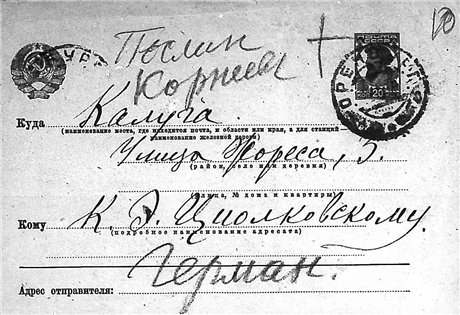 Послан
Корнеев
ПОЧТА
СССР
20
Куда
Калуга
(наименование места, где находится почта, и области или края, а для станций—
наименование железной дороги)
Улица Жореса, 3.
(район, село или деревня)
(улица, № дома и квартиры)
Кому
К. Э. Циолковскому.
(подробное наименование адресата)
Герман.
Адрес отправителя: